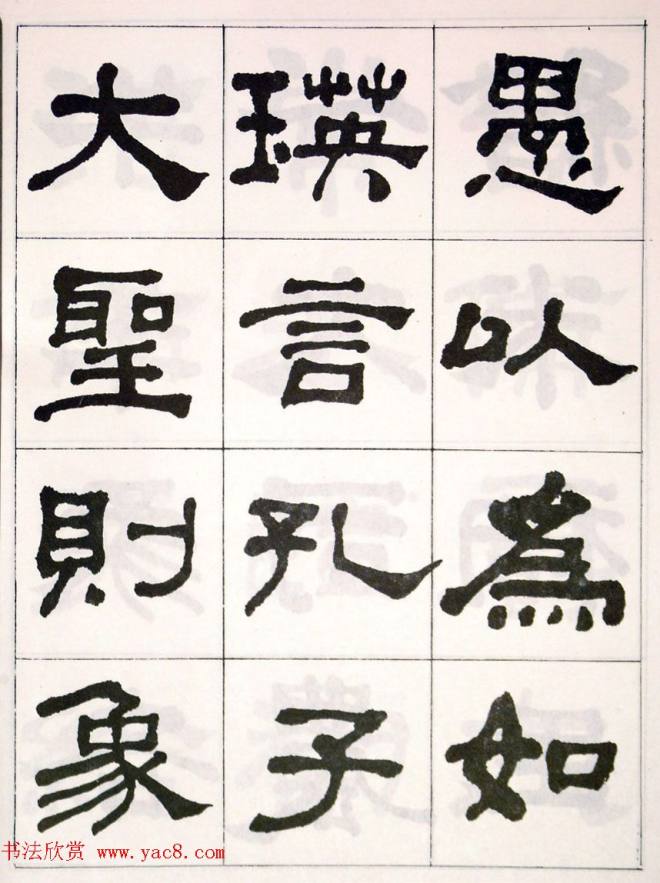 愚以為如
瑛言孔子
大聖則象
书法欣赏 www.yac8.com